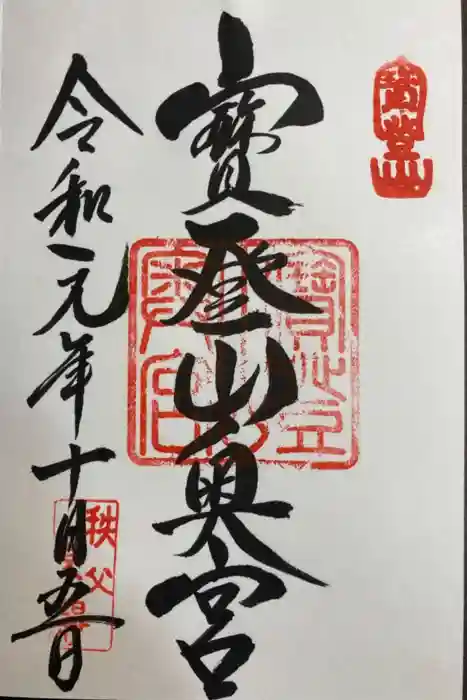 寶登山
寶登山奥宮
令和元年十月五日
秩父